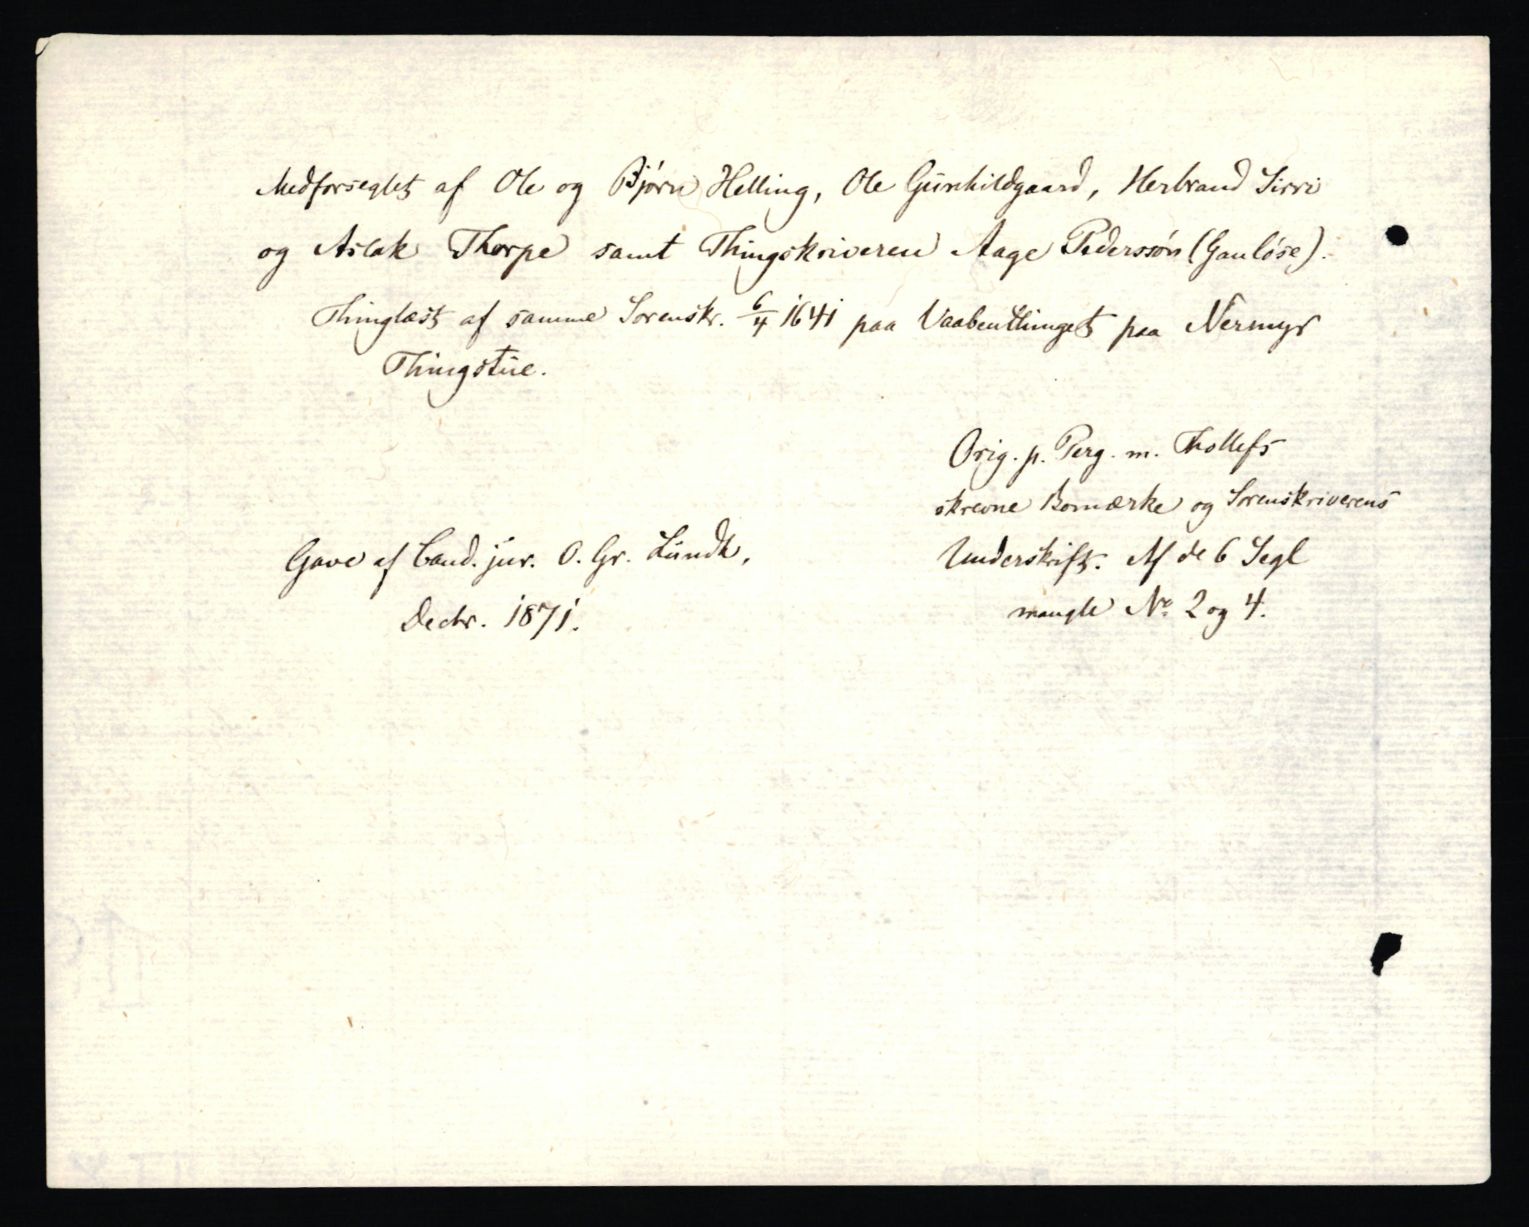 Medforseglet af Ole og Bjørn Helling, Ole Gunhildgaard, Herbrand Sirri
og Aslak Thorpe samt Thingskriveren Aage Pederssøn (Ganløse).
Thinglæst af samme Sorenskr. 6/4 1641 paa Vaabenthinget paa Nermyr
Thingstue.
Orig. p. Perg. m. Thollefs
skrevne Bomærke og Sorenskriverens
Gave af Cand. jur. O. Gr. Lundh,
Underskrift. Af de 6 Segl
Decbr. 1871.
mangle No. 2 og 4.